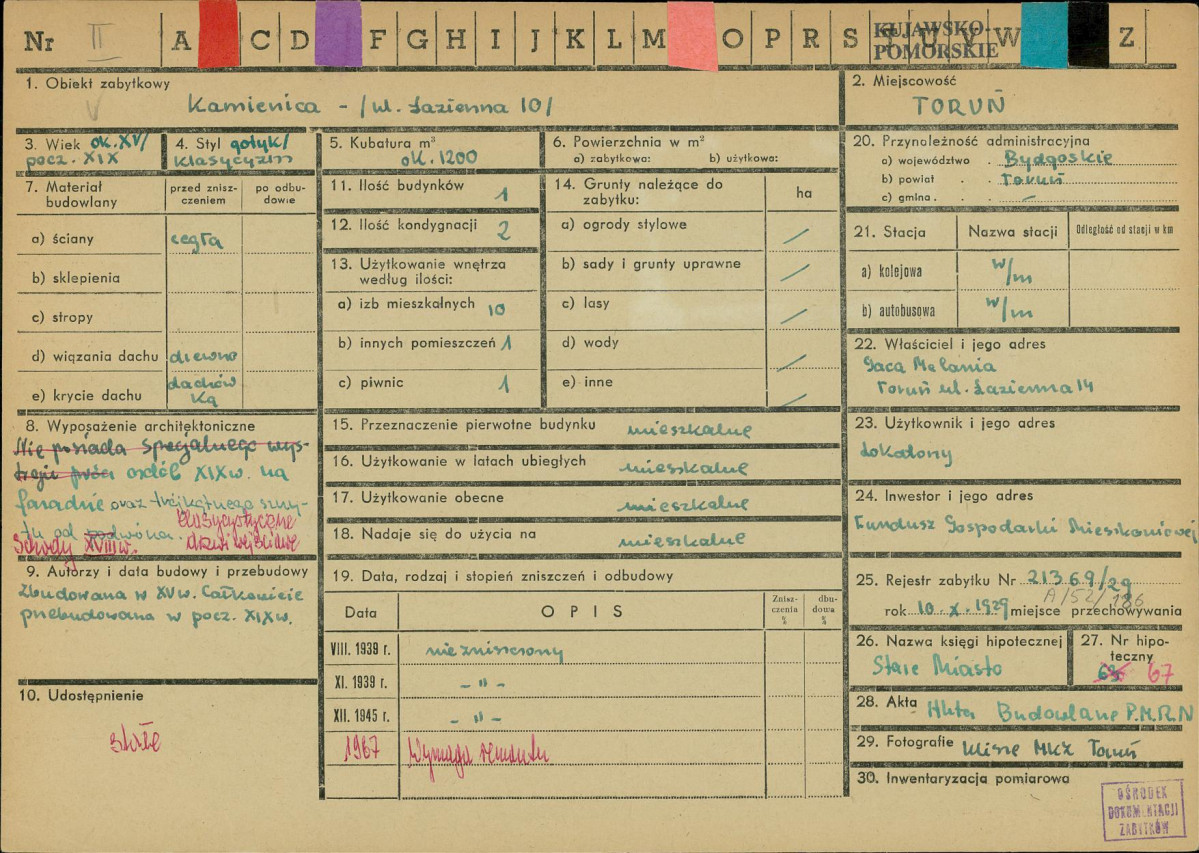 Nr II A C D F G H I J K L M O P R S T U W Z
KUJAWSKO-
POMORSKIE
1. Obiekt zabytkowy
Kamienica - /ul. Łazienna 10/
2. Miejscowość
TORUŃ
3. Wiek ok. XV/
pocz. XIX
4. Styl gotyk/
klasycyzm
5. Kubatura m³
ok. 1200
6. Powierzchnia w m²
a) zabytkowa: b) użytkowa:
20. Przynależność administracyjna
a) województwo . Bydgoskie
b) powiat . . Toruń
c) gmina . . –
7. Materiał
budowlany
przed znisz-
czeniem
po odbu-
dowie
a) ściany cegła
b) sklepienia
c) stropy
d) wiązania dachu drewno
e) krycie dachu dachów
ka
11. Ilość budynków 1
12. Ilość kondygnacji 2
13. Użytkowanie wnętrza
według ilości:
a) izb mieszkalnych 10
b) innych pomieszczeń 1
c) piwnic 1
14. Grunty należące do
zabytku:
ha
a) ogrody stylowe /
b) sady i grunty uprawne /
c) lasy /
d) wody /
e) inne /
21. Stacja Nazwa stacji Odległość od stacji w km
a) kolejowa w/m
b) autobusowa w/m
22. Właściciel i jego adres
Gaca Melania
Toruń ul. Łazienna 14
8. Wyposażenie architektoniczne
Nie posiada specjalnego wys-
troju prócz ozdób XIXw. na
fasadzie oraz trójkątnego szczy-
tu od podwórza. klasycystyczne
Schody XVIIIw. drzwi wejściowe
9. Autorzy i data budowy i przebudowy
Zbudowana w XVw. Całkowicie
przebudowana w pocz. XIXw.
10. Udostępnienie
stałe
15. Przeznaczenie pierwotne budynku mieszkalne
16. Użytkowanie w latach ubiegłych mieszkalne
17. Użytkowanie obecne mieszkalne
18. Nadaje się do użycia na mieszkalne
19. Data, rodzaj i stopień zniszczeń i odbudowy
Data OPIS
Znisz-
czenia
%
dbu-
dowa
%
VIII. 1939 r. niezniszczony
XI. 1939 r. – " –
XII. 1945 r. – " –
1967 Wymaga remontu
23. Użytkownik i jego adres
lokatorzy
24. Inwestor i jego adres
Fundusz Gospodarki Mieszkaniowej
25. Rejestr zabytku Nr 21369/29
A/52/186
rok 10. X. 1929 miejsce przechowywania
26. Nazwa księgi hipotecznej
Stare Miasto
27. Nr hipo-
teczny
67
28. Akta Akta Budowlane P.M.R.N
29. Fotografie klisze MKZ Toruń
30. Inwentaryzacja pomiarowa
OŚRODEK
DOKUMENTACJI
ZABYTKÓW